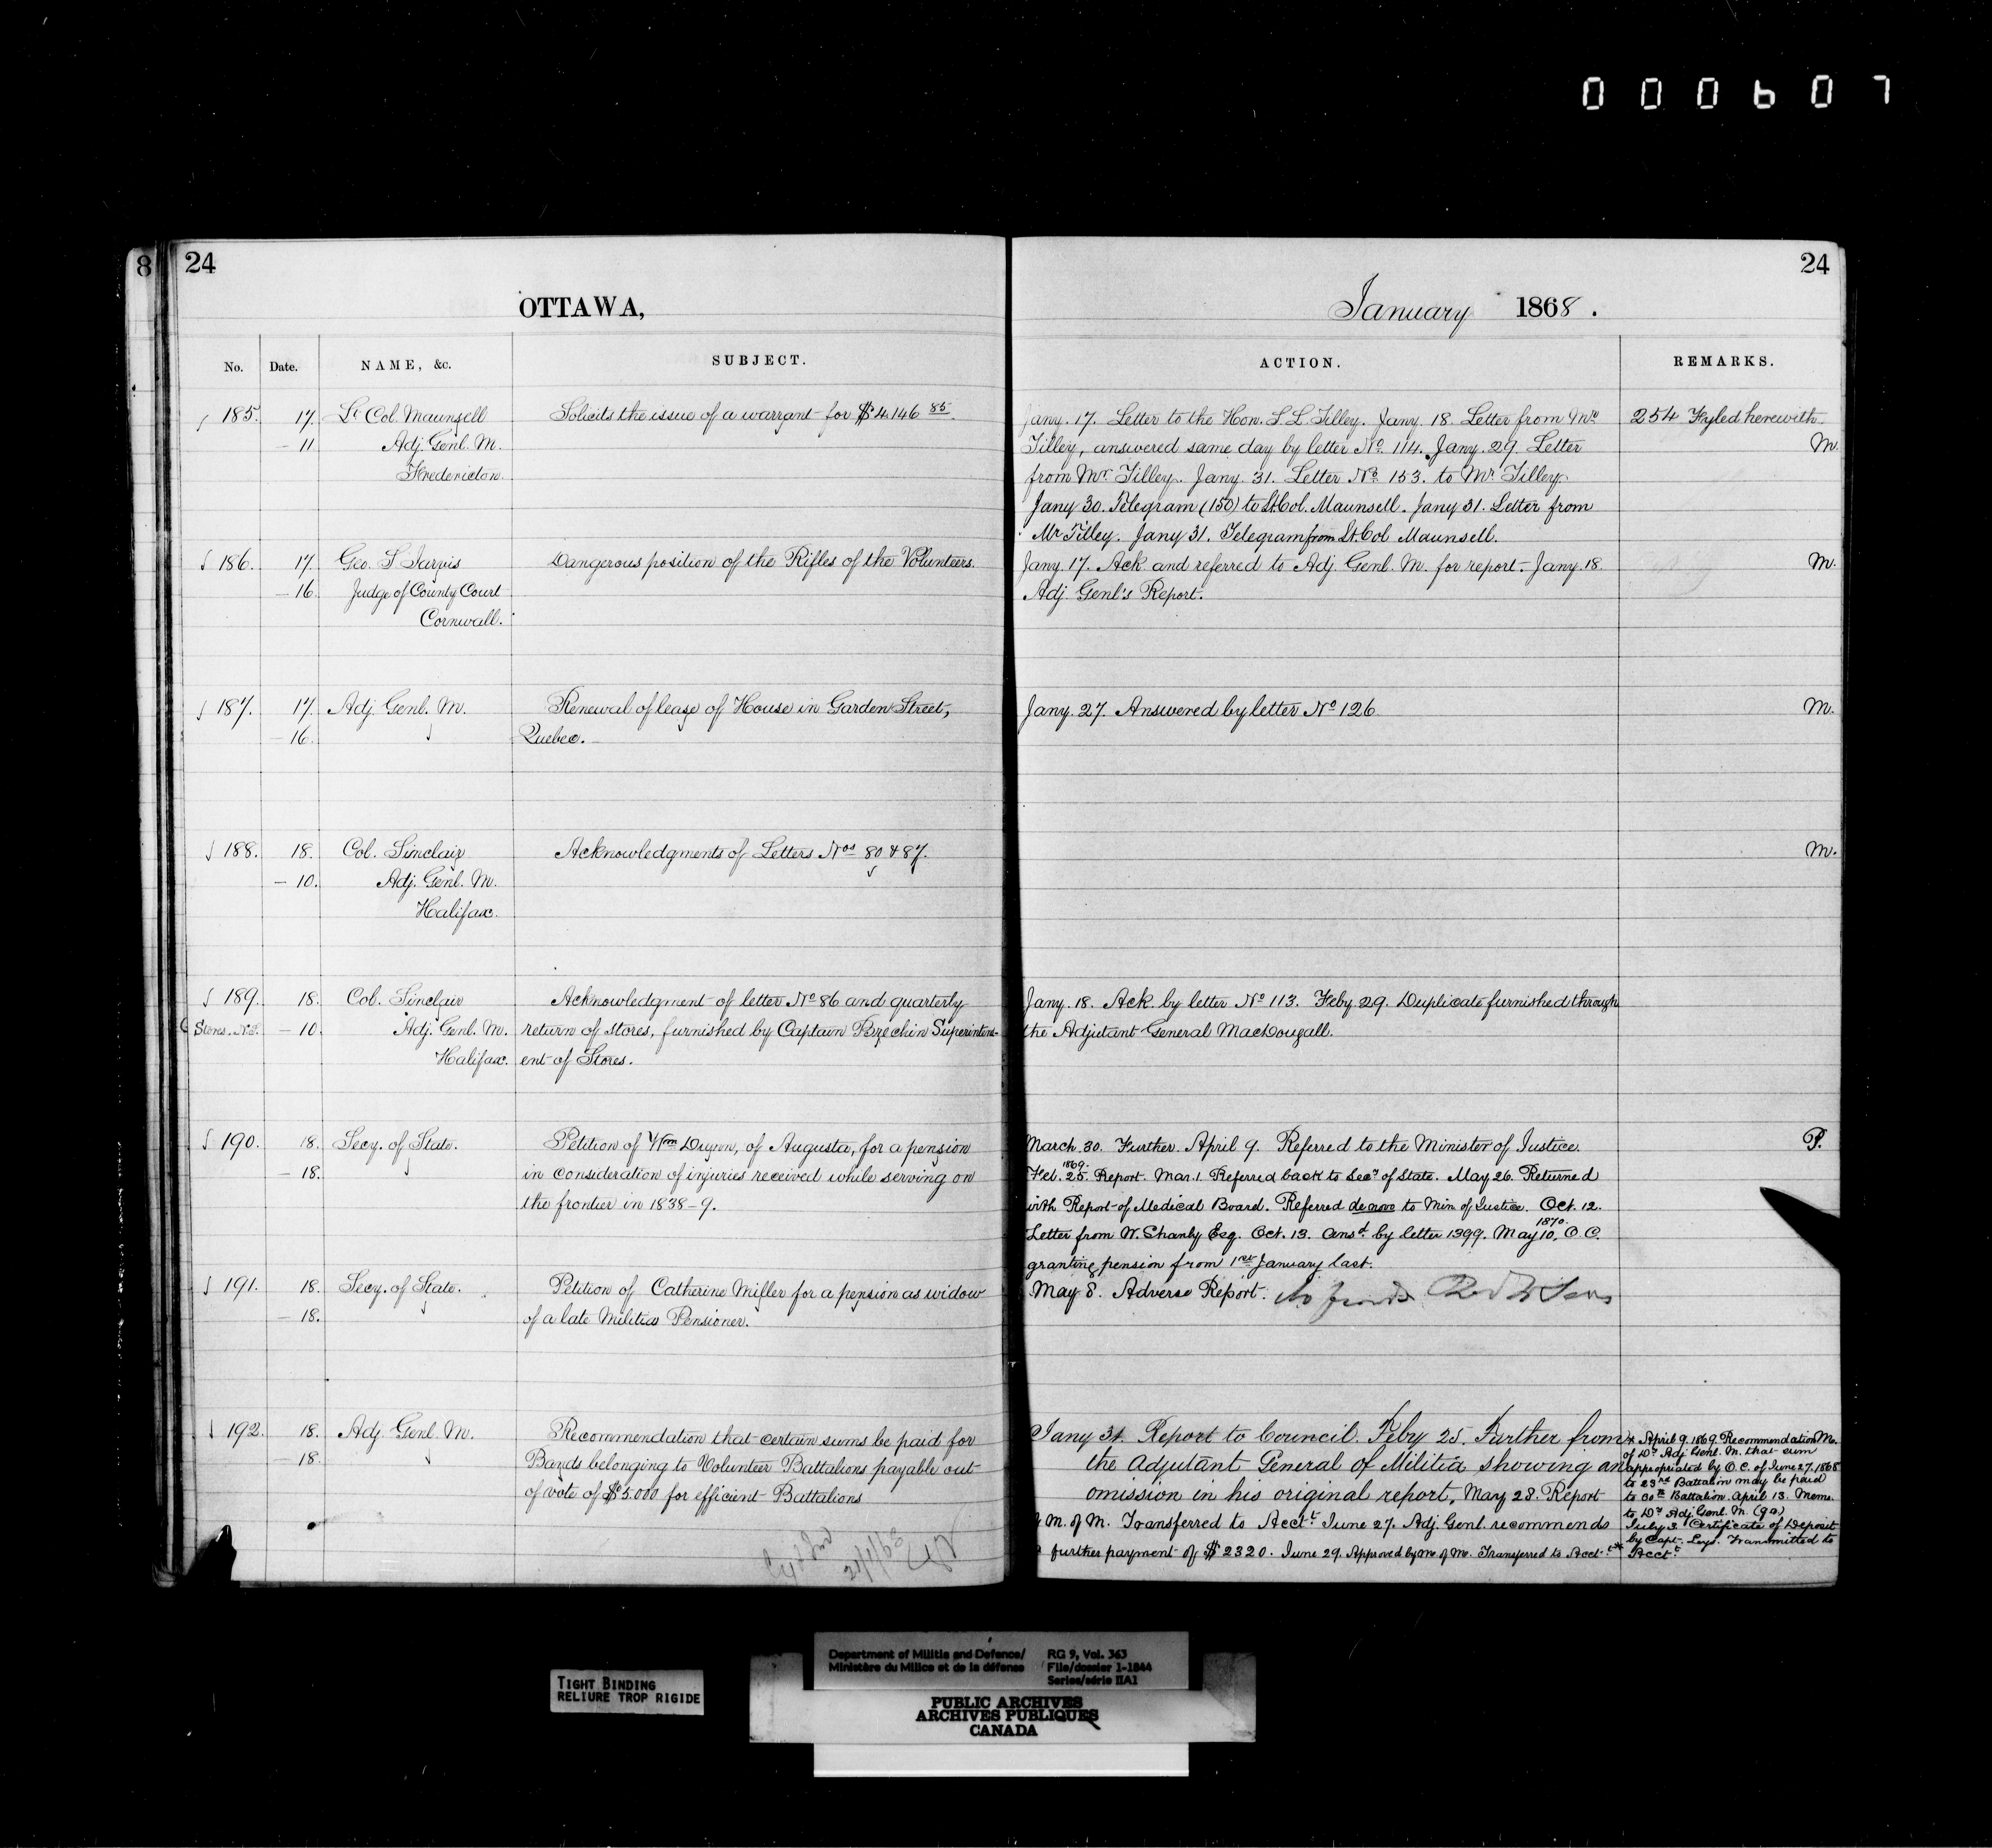 000607
8
24
24
OTTAWA,
January 1868.
No. Date. NAME, &c. SUBJECT.
ACTION. REMARKS.
185. 17. Lt Col. Maunsell Solicits the issue of a warrant for $4146 85.
- 11 Adj. Genl. M.
Fredericton.
Jany. 17. Letter to the Hon. S. L. Tilley. Jany. 18. Letter from Mr.
Tilley, answered same day by letter No. 114. Jany. 29. Letter
from Mr. Tilley. Jany. 31. Letter No. 153. to Mr. Tilley.
Jany 30. Telegram (150) to Lt. Col. Maunsell. Jany 31. Letter from
Mr Tilley. Jany 31. Telegram from Lt. Col Maunsell.
254 Fyled herewith
M.
186. 17. Geo. S. Jarvis Dangerous position of the Rifles of the Volunteers.
- 16. Judge of County Court
Cornwall.
Jany 17. Ack and referred to Adj. Genl. M. for report. Jany. 18
Adj. Genl's Report.
M.
187. 17. Adj. Genl. M. Renewal of lease of House in Garden Street,
- 16. Quebec.
Jany. 27. Answered by letter No 126.
M.
188. 18. Col. Sinclair Acknowledgments of Letters Nos 80 & 87.
- 10. Adj. Genl. M.
Halifax.
M.
189. 18. Col. Sinclair Acknowledgment of letter No 86 and quarterly
Stores. - 10. Adj. Genl. M. return of stores, furnished by Captain Superintend-
Halifax. ent of Stores.
Jany. 18. Ack. by letter No 113. Feby. 29. Duplicate furnished through
the Adjutant General MacDougall.
190. 18. Secy. of State. Petition of Wm, of Augusta, for a pension
- 18. in consideration of injuries received while serving on
the frontier in 1838-9.
March. 30. Further. April 9. Referred to the Minister of Justice.
1869.
Feb. 25. Report. Mar. 1. Referred back to Secy of State. May 26. Returned
with Report of Medical Board. Referred de novo to Min of Justice. Oct. 12.
Letter from W. Shanly Esq. Oct. 13. Ansd by letter 1399. May 10, 1870. O.C.
granting pension from 1st January last.
P.
191. 18. Secy. of State. Petition of Catherine Miller for a pension as widow
- 18. of a late Militia Pensioner.
May 8. Adverse Report.
192. 18. Adj. Genl. M. Recommendation that certain sums be paid for
- 18. Bands belonging to Volunteer Battalions payable out
of vote of $5.000 for efficient Battalions
Jany 31. Report to Council. Feby 25. Further from
the Adjutant General of Militia showing an
omission in his original report. May 28. Report
M. of M. Transferred to Acctt. June 27. Adj. Genl. recommends
further payment of $2320. June 29. Approved by M. of M. Transferred to Acctt.*
* April 9. 1869. Recommendation M.
of Dy Adj Genl. M. that sum
appropriated by O.C. of June 27, 1868
to 23rd Battalion may be paid
to 30th Battalion. April 13. Memo.
to Dy Adj. Genl. M. (90)
July 3. Certificate of Deposit
by Capt. Transmitted to
Acctt.
TIGHT BINDING
RELIURE TROP RIGIDE
Department of Militia and Defence/
Ministère du Milice et de la défense
RG 9, Vol. 363
File/dossier 1-1844
Series/série IIA1
PUBLIC ARCHIVES
ARCHIVES PUBLIQUES
CANADA